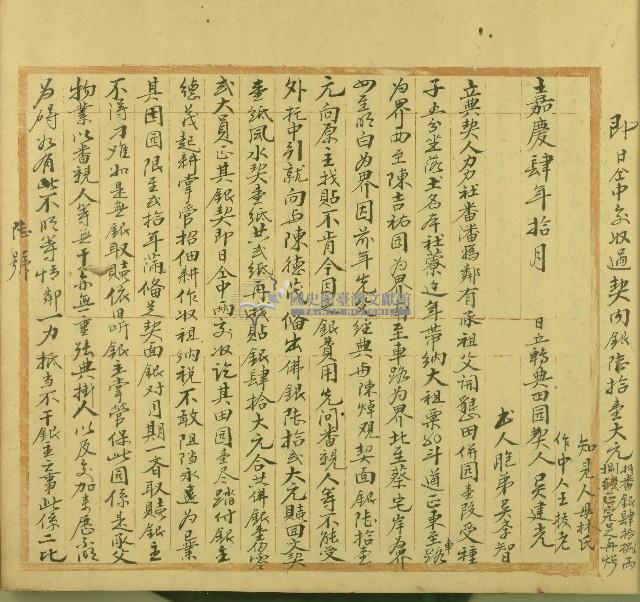 即日仝中交收過契內銀陸拾壹大元折番銀肆拾捌兩捌錢正完足再炤
知見人母林氏
作中人王拔老
土嘉慶肆年拾月 日立轉典田園契人吳建光
書人胞弟吳李智
立典契人 社番潘 鄰有承祖父開墾田併園壹段受種
子 坐落土名在社藔边年帶納大租粟 斗道正東至車路
為界西至陳吉祐园為界 至車路為界北至蔡宅岸為界
四至明白為界因前年先 經典與陳焯观契面銀陸拾壹
元向原主找貼不肯今因 銀費用先问番親人等不能受
外托中引就向與陳德茂備出佛銀陸拾弍大元贖回文契
壹紙風水契壹紙共弍紙再找貼銀肆拾大元合共佛銀壹佰零
弍大員正其銀契即日仝中兩交收訖其田園壹尽踏付銀主
德茂起耕掌管招佃耕作收租納稅不敢阻挡永遠為業
其田园限至弍拾年滿備足契面銀对月期一齊取贖銀主
不得刁难如是無銀取贖依旧听銀主掌管保此园係是承父
物業以番親人等無干亦無重張典掛人以及交加来歷不明
为碍如有此不明等情鄰一力抵当不干銀主之事此係二比
陸號
國史館臺灣文獻館